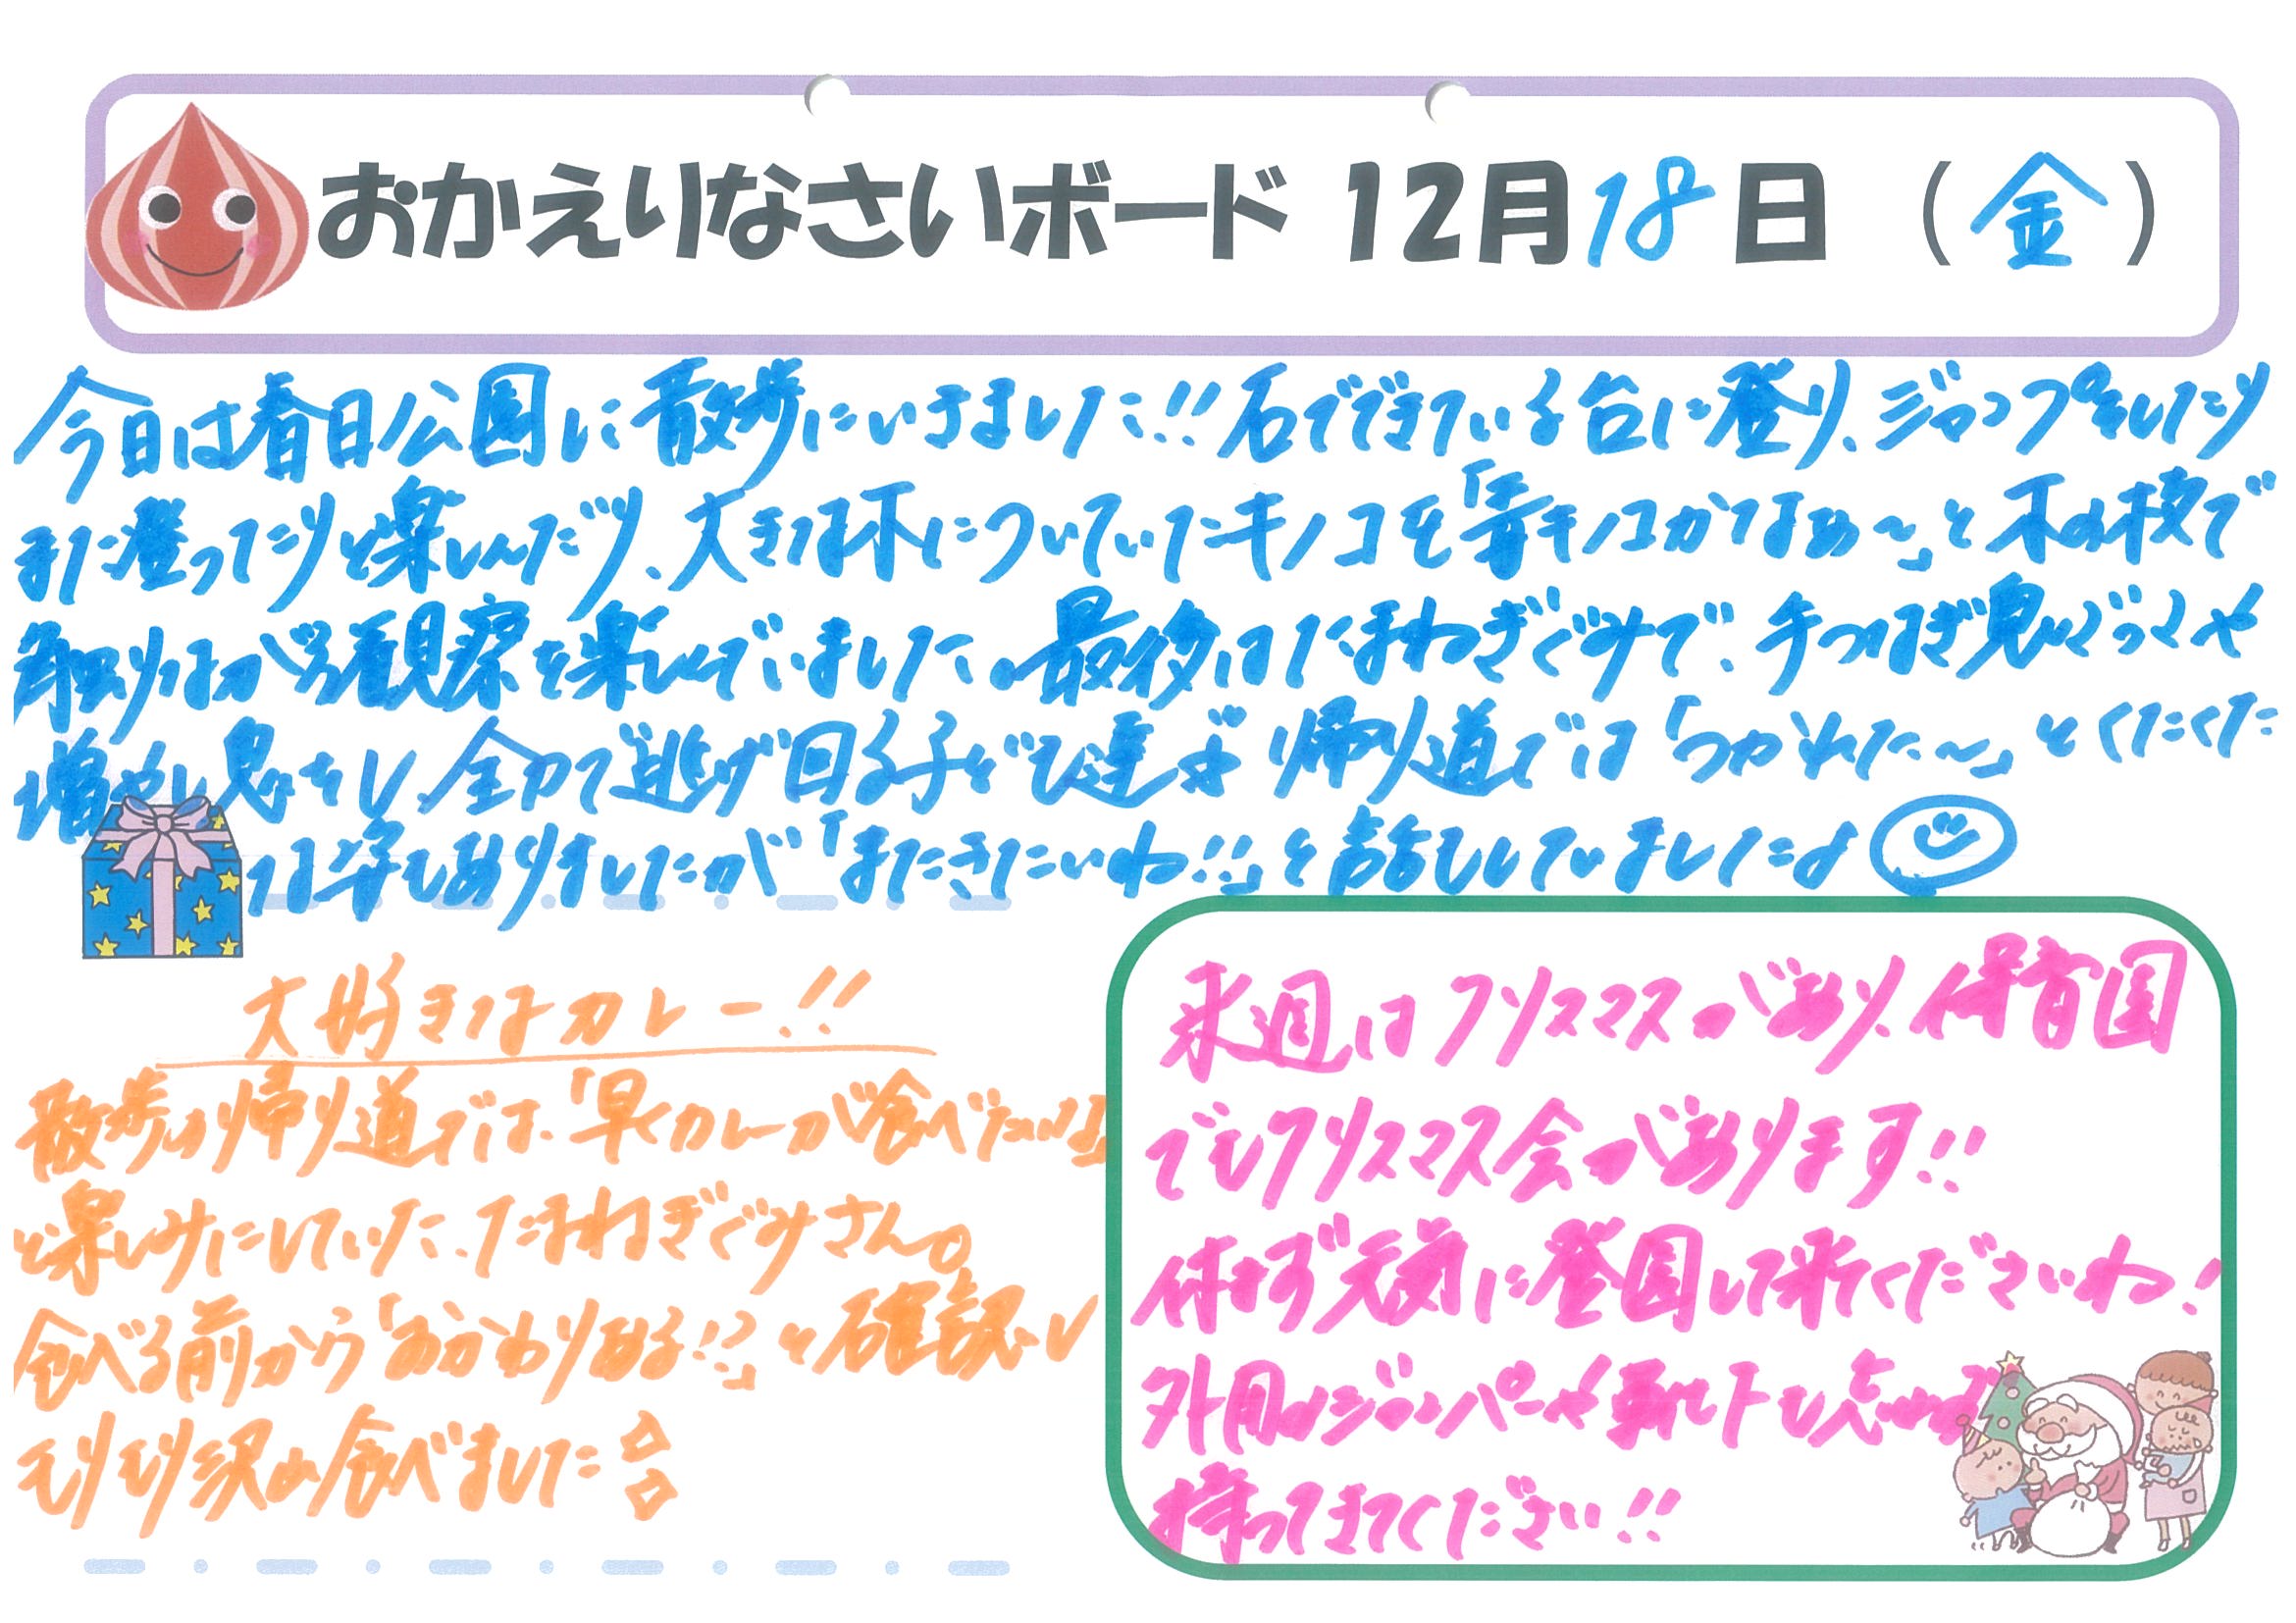 おかえりなさいボード 12月18日 （金）
今日は春日公園に散歩にいきました!!石でできている台に登り、ジャンプをしたり
また登ったりと楽しんだり、大きな木についていたキノコを「毒キノコかなぁ〜」と木の枝で
取りながら観察を楽しんでいました。最後はたまねぎぐみで、手つなぎ鬼ごっこや
増やし鬼をし、全力で逃げ回る子ども達☆帰り道では「つかれた〜」とくたくた
な姿もありましたが「またきたいね!!」と話もしていましたよ
大好きなカレー!!
散歩の帰り道では、「早くカレーが食べたいな」
と楽しみにしていた、たまねぎぐみさん。
食べる前から「おかわりある!?」と確認し
モリモリ沢山食べました
来週はクリスマスがあり、保育園
でもクリスマス会があります!!
休まず元気に登園して来てくださいね!
外用のジャンパーや靴下も忘れず
持ってきてください!!